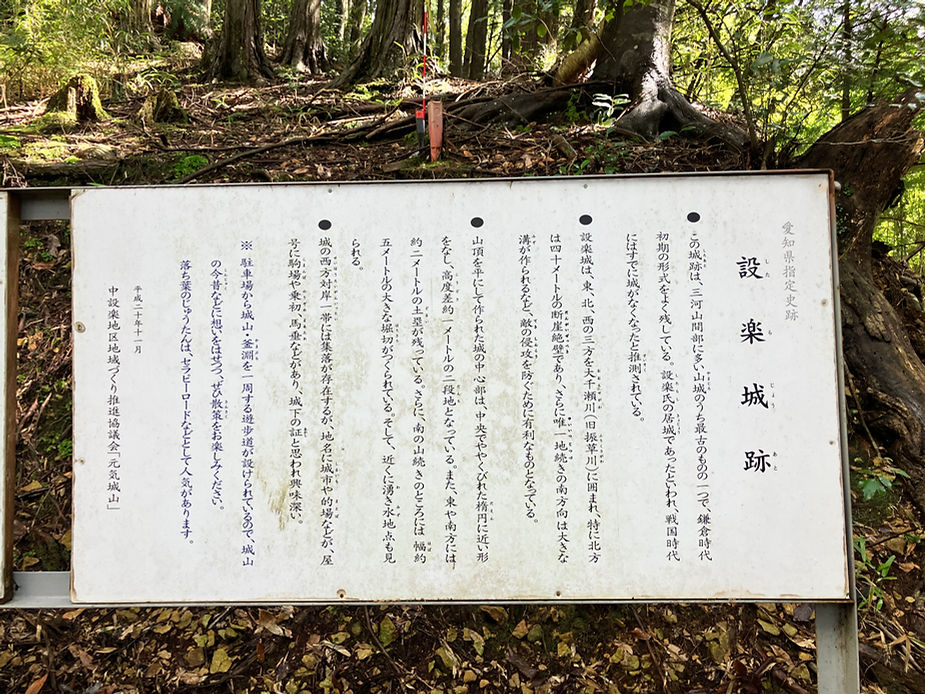 愛知県指定史跡
設楽城跡
したらじょうあと
● この城跡は、三河山間部に多い山城のうち最古のものの一つで、鎌倉時代
初期の形式をよく残している。設楽氏の居城であったといわれ、戦国時代
にはすでに城がなくなったと推測されている。
● 設楽城は、東、北、西の三方を大千瀬川(旧振草川)に囲まれ、特に北方
は四十メートルの断崖絶壁であり、さらに唯一地続きの南方向は大きな
溝が作られるなど、敵の侵攻を防ぐために有利なものとなっている。
● 山頂を平にして作られた城の中心部は、中央でややくびれた楕円に近い形
をなし、高度差約一メートルの二段地となっている。また、東や南方には
約二メートルの土塁が残っている。さらに、南の山続きのところには幅約
五メートルの大きな堀切がつくられている。そして、近くに湧き水地点も見
られる。
● 城の西方対岸一帯には集落が存在するが、地名に城市や的場などが、屋
号に駒場や乗初、馬乗などがあり、城下の証と思われ興味深い。
※ 駐車場から城山・釜淵を一周する遊歩道が設けられているので、城山
の今昔などに想いをはせつつ、ぜひ散策をお楽しみください。
落ち葉のじゅうたんは、セラピーロードなどとして人気があります。
平成二十年十一月
中設楽地区地域づくり推進協議会「元気城山」